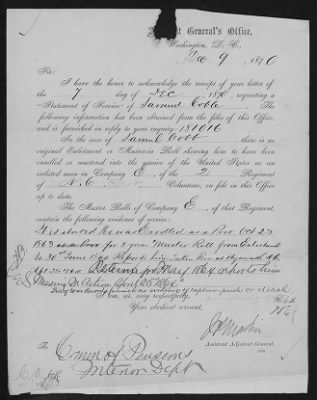 General's Office,
Washington, D. C.
Dec 9, 1870
Sir:
I have the honor to acknowledge the receipt of your letter of
the 7 day of Dec, 187 requesting a
Statement of Service of Samuel Cobb
The following information has been obtained from the files of this Office,
and is furnished in reply to your inquiry 181016
In the case of Samuel Cobb there is no
original Enlistment or Muster-in Roll showing him to have been
enrolled or mustered into the service of the United States as an
enlisted man in Company E of the 2 Regiment
of N.C. Volunteers, on file in this Office
up to date.
The Muster Rolls of Company E, of that Regiment,
contain the following evidence of service:
He was Enrolled Oct 27
1863 for 3 years Muster Roll from Enlistment
to 30 June 1864 Reports him taken Prisoner at Plymouth
Returns for May 1864 reports him
Missing in Action April 20 1864
I am, sir, very respectfully,
Your obedient servant,
Assistant Adjutant General.
To
Comm of Pensions
Interior Dept